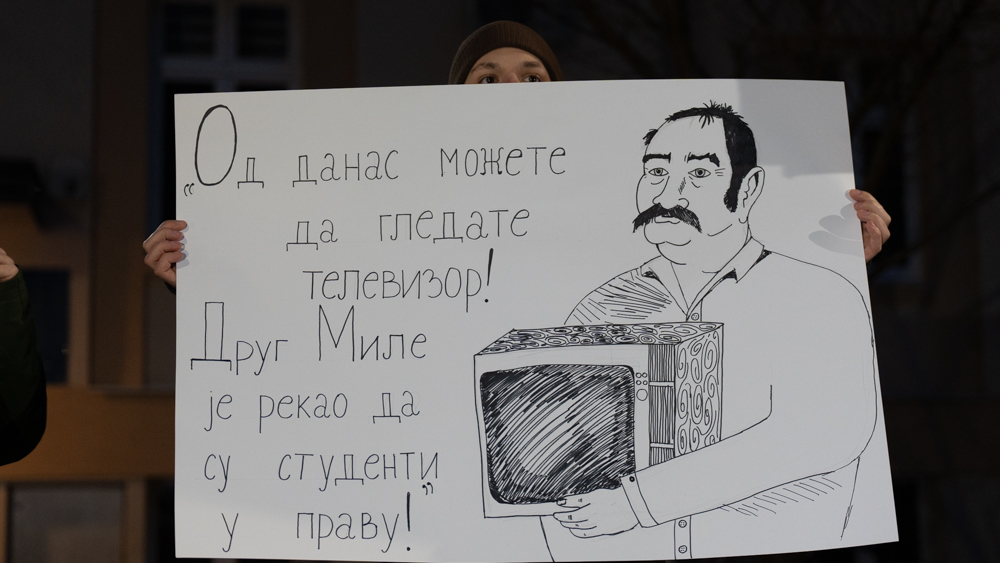 „Од данас можете
да гледате
телевизор!
Друг Миле
је рекао да
су студенти
у праву!”